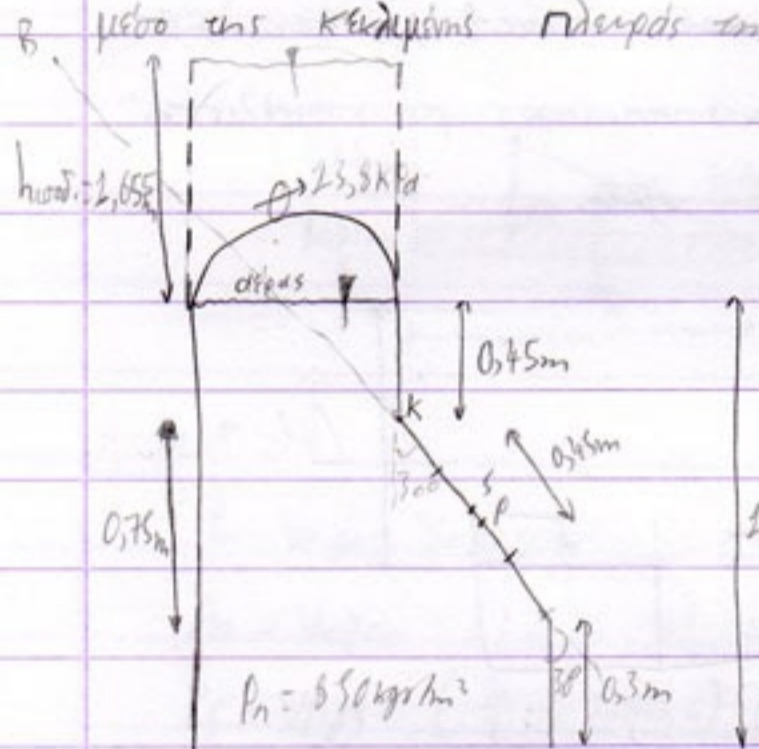 B μέσο της κεκλιμένης πλευράς της
hισοδ.=1,655m
23,8kPa
αέρας
0,45m
K
30°
0,45m
S
P
0,75m
1
30
0,3m